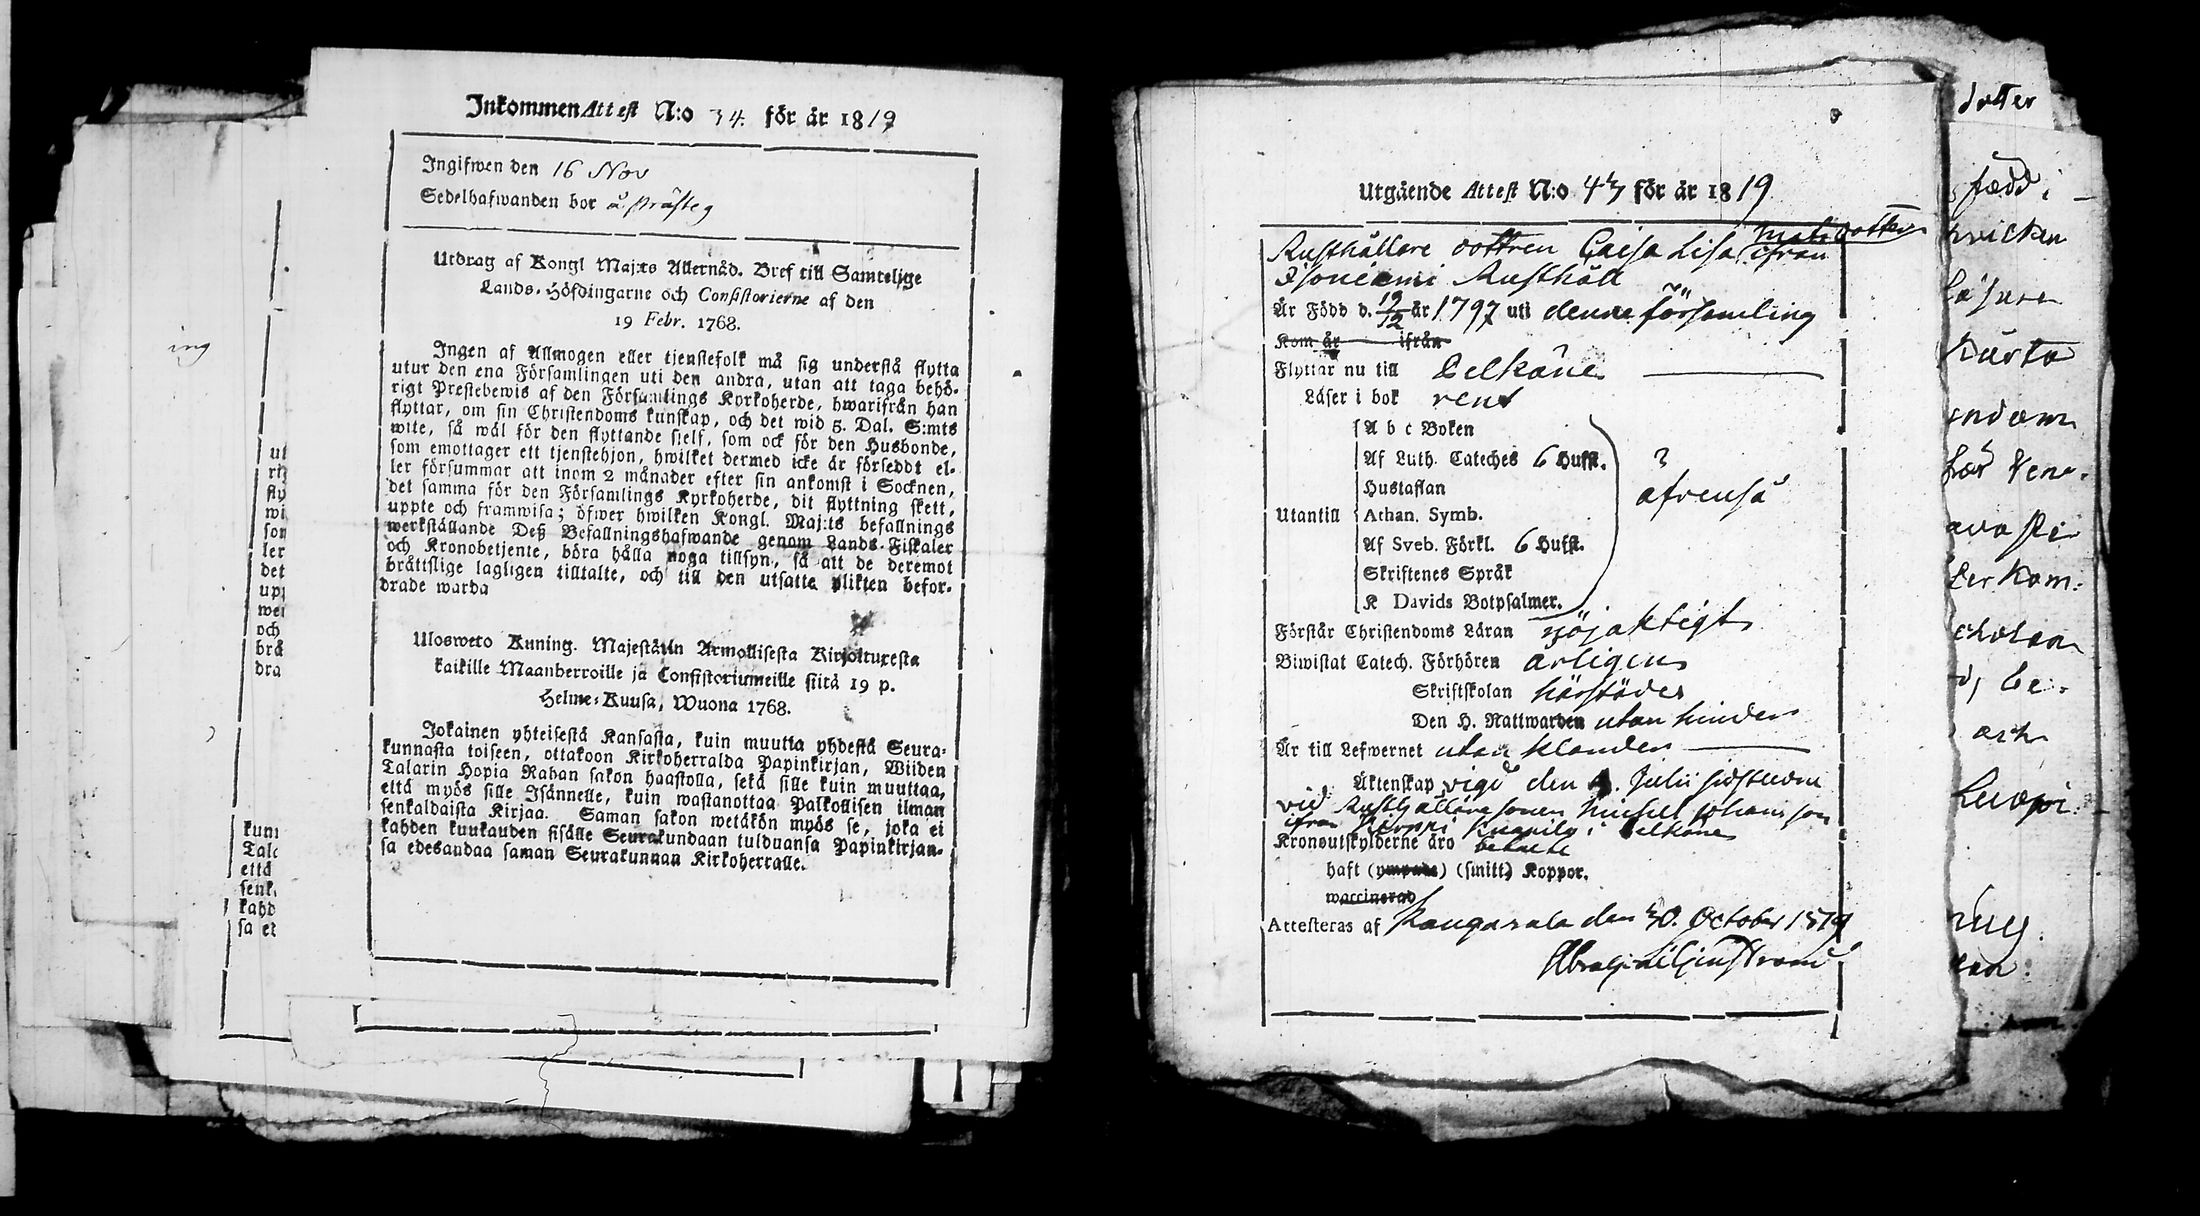 Inkommen Attest N:o 34. för år 1819
Ingifwen den 16 Nov
Sedelhafwanden bor å prästeg
Utdrag af Kongl Maj:ts Allernåd. Bref till Samtelige
Lands-Höfdingarne och Consistorierne af den
19 Febr. 1768.
Ingen af Allmogen eller tjenstefolk må sig understå flytta
utur den ena Församlingen uti den andra, utan att taga behö-
rigt Prestebewis af den Församlings Kyrkoherde, hwarifrån han
flyttar, om sin Christendoms kunskap, och det wid 5. Dal. S:mts
wite, så wäl för den flyttande sielf, som ock för den Husbonde,
som emottager ett tjenstehjon, hwilket dermed icke är förseddt el-
ler försummar att inom 2 månader efter sin ankomst i Socknen,
det samma för den Församlings Kyrkoherde, dit flyttning skett,
uppte och framwisa; öfwer hwilken Kongl. Maj:ts befallnings
werkställande Deß Befallningshafwande genom Lands-Fiskaler
och Kronobetjente, böra hålla noga tillsyn, så att de deremot
bråttslige lagligen tilltalte, och till den utsatte plikten befor-
drade warda
Ulosweto Kuning. Majestätin Armollisesta Kirjoituxesta
kaikille Maanherroille ja Consistoriumeille siitä 19 p.
Helme-Kuusa, Wuona 1768.
Jokainen yhteisestä Kansasta, kuin muutta yhdestä Seura-
kunnasta toiseen, ottakoon Kirkoherralda Papinkirjan, Wiiden
Talarin Hopia Rahan sakon haastolla, sekä sille kuin muuttaa,
että myös sille Isännelle, kuin wastanottaa Palkollisen ilman
senkaldaista Kirjaa. Saman sakon wetäkön myös se, joka ei
kahden kuukauden sisälle Seurakundaan tulduansa Papinkirjan-
sa edesandaa saman Seurakunnan Kirkoherralle.
ing
ut
rig
fly
wi
son
ler
det
upp
wer
och
brå
dra
kunn
Tala
että
senk
kahd
sa et
Utgående Attest N:o 43 för år 1819
Rusthållare dottren Caisa Lisa Mats dotter ifrån
Isoniemi Rusthåll
Är Född d. 19/12 år 1797 uti denna församling
Kom år ifrån
Flyttar nu till Pelkäne
Läser i bok rent
A b c Boken
Af Luth. Cateches 6 Hufst.
Hustaflan
Utantill Athan. Symb.
afvenså
Af Sveb. Förkl. 6 Hufst.
Skriftenes Språk
K Davids Botpsalmer.
Förstår Christendoms Läran nöjaktigt
Biwistat Catech. Förhören årligen
Skriftskolan härstädes
Den H. Nattwarden utan hinder
Är till Lefwernet utan klander
Äktenskap vigd den Julii sidstledne
vid Rusthållare sonen Michell Johansson
ifrån i Pelkäne
Kronoutskylderne äro betalte
haft (ympade) (smitt) Koppor.
waccinerad
Attesteras af Kangasala den 30. October 1819
dotter
född i
hvilken
endom
ler kom:
be-
och